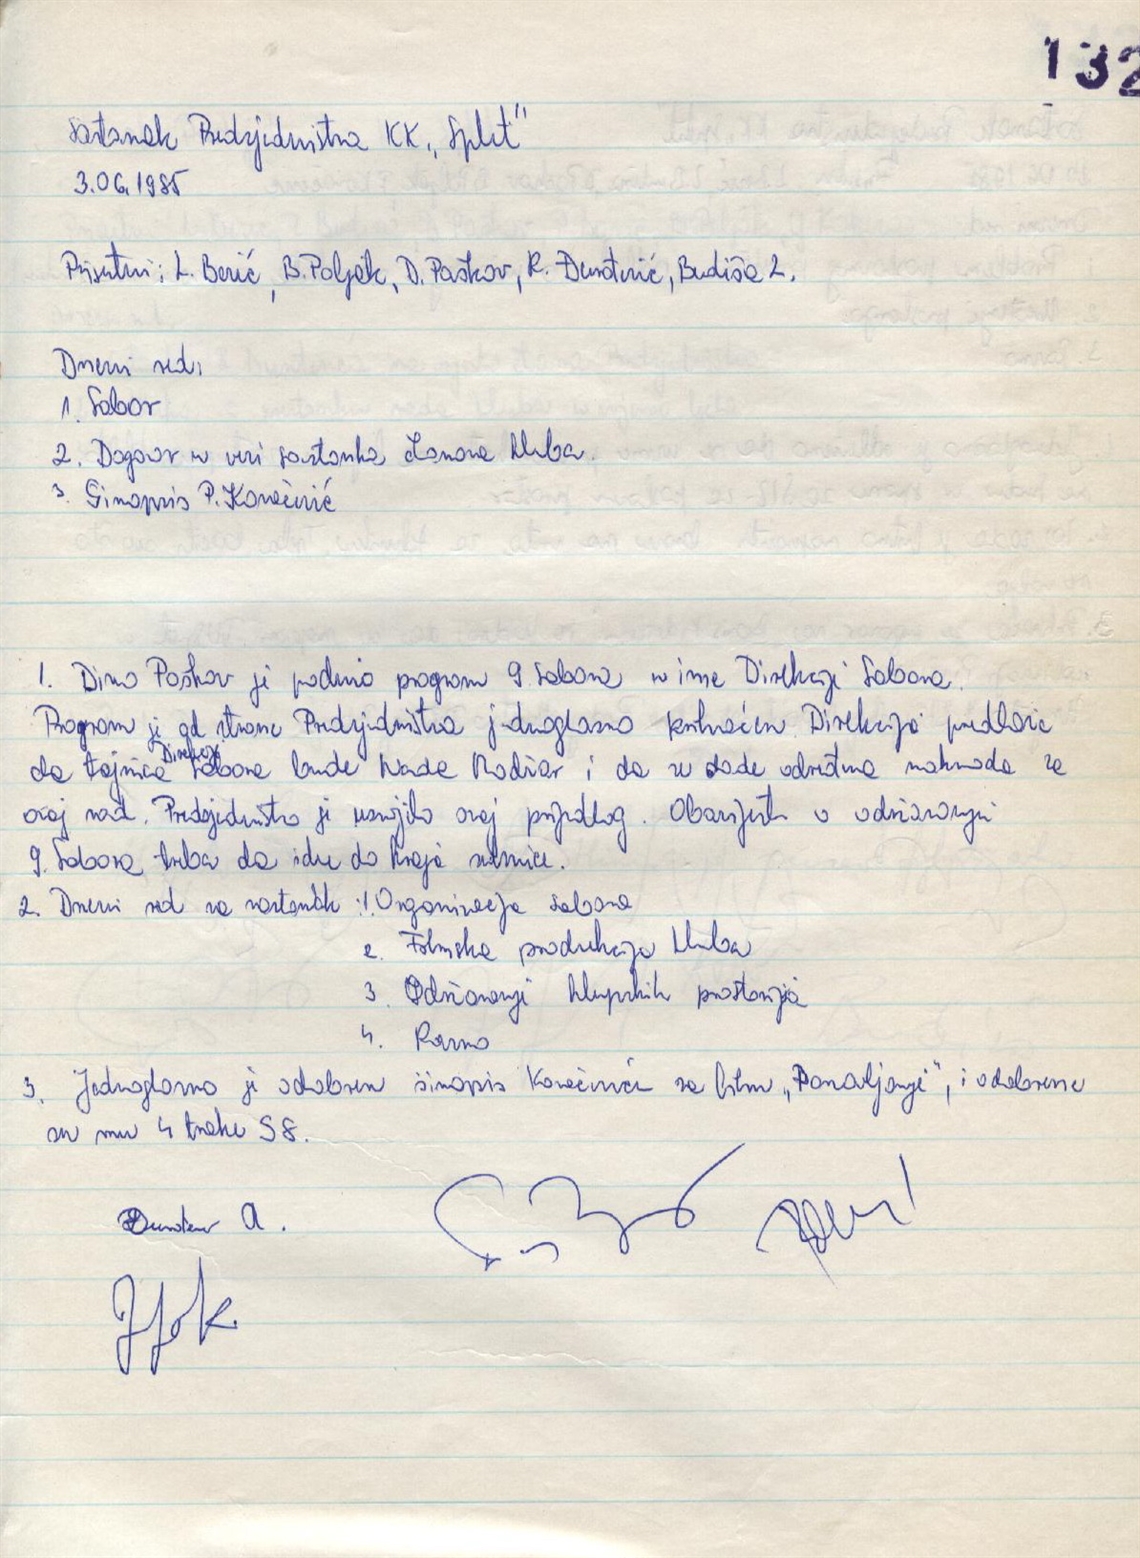 132
Sastanak Predsjedništva KK „Split"
3.06.1985
Prisutni: L. Berić, B. Poljak, D. Paškov, R. Dundović, Budiša Z.
Dnevni red:
1. Sabor
2. Dogovor u vezi sastanka članova kluba
3. Sinopsis P. Konačević
1. Dino Paškov je podnio program 9. Sabora u ime Direkcije Sabora.
Program je od strane Predsjedništva jednoglasno prihvaćen. Direkcija predlaže
da tajnica Direkcije Sabora bude Nada Modžar i da se dade određena naknada za
ovaj rad. Predsjedništvo je usvojilo ovaj prijedlog. Obavijest o održavanju
9. Sabora treba da ide do kraja sedmice.
2. Dnevni red za sastanak: 1. Organizacija sabora
2. Filmska produkcija kluba
3. Održavanje klupskih prostorija
4. Razno
3. Jednoglasno je odobren sinopsis za film „Ponavljanje", i odobrene
su mu 4 trake S8.
A.